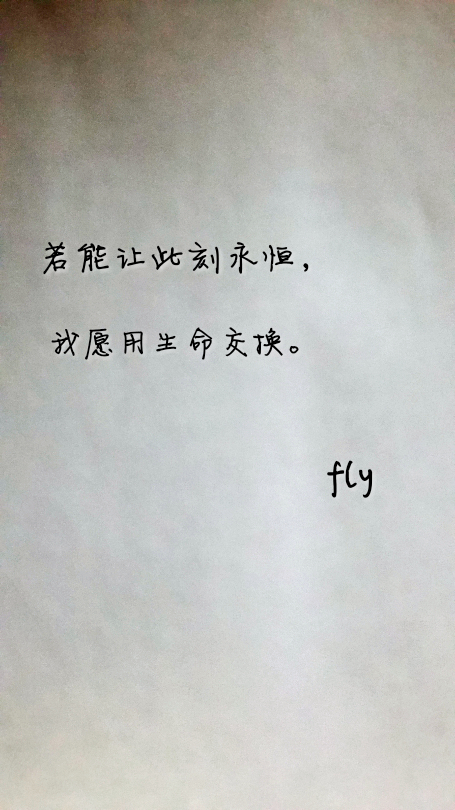 若能让此刻永恒，
我愿用生命交换。
fly